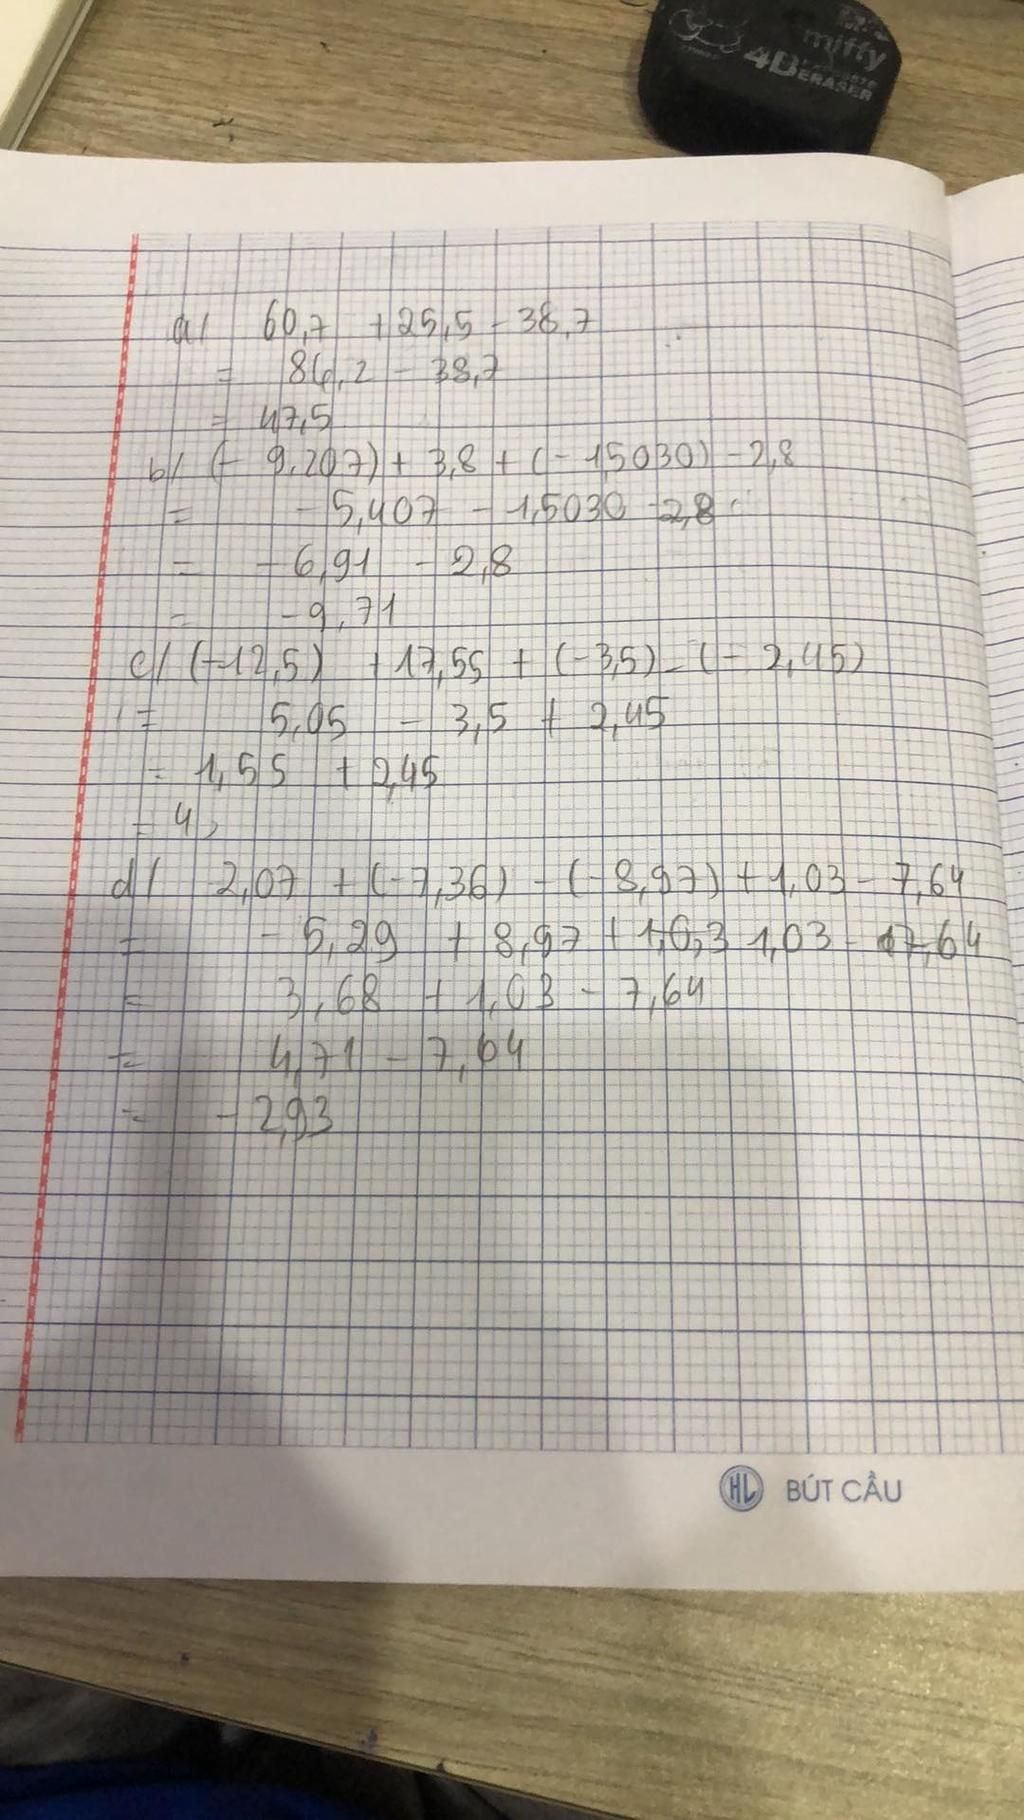 miffy
4B ERASER
a/ 60,7 + 25,5 - 38,7
= 86,2 - 38,7
= 47,5
b/ (- 9,207) + 3,8 + (- 1,5030) - 2,8
= - 5,407 - 1,5030 - 2,8
= - 6,91 - 2,8
= - 9,71
c/ (-12,5) + 17,55 + (-3,5) - (- 2,45)
= 5,05 - 3,5 + 2,45
= 1,55 + 2,45
= 4
d/ 2,07 + (-7,36) - (-8,97) + 1,03 - 7,64
= - 5,29 + 8,97 + 1,03 - 7,64
= 3,68 + 1,03 - 7,64
= 4,71 - 7,64
= - 2,93
HL BÚT CẦU